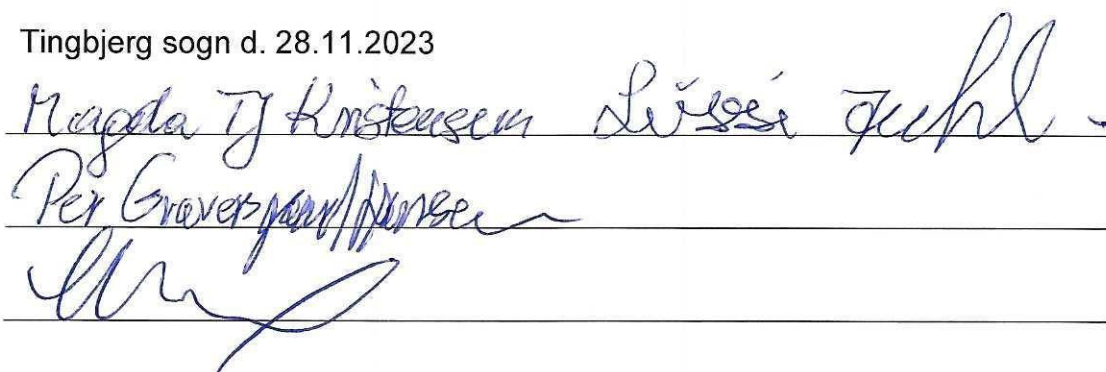 Tingbjerg sogn d. 28.11.2023
Magda TJ Kristensen Lissi Juhl
Per Graversgaard Hansen